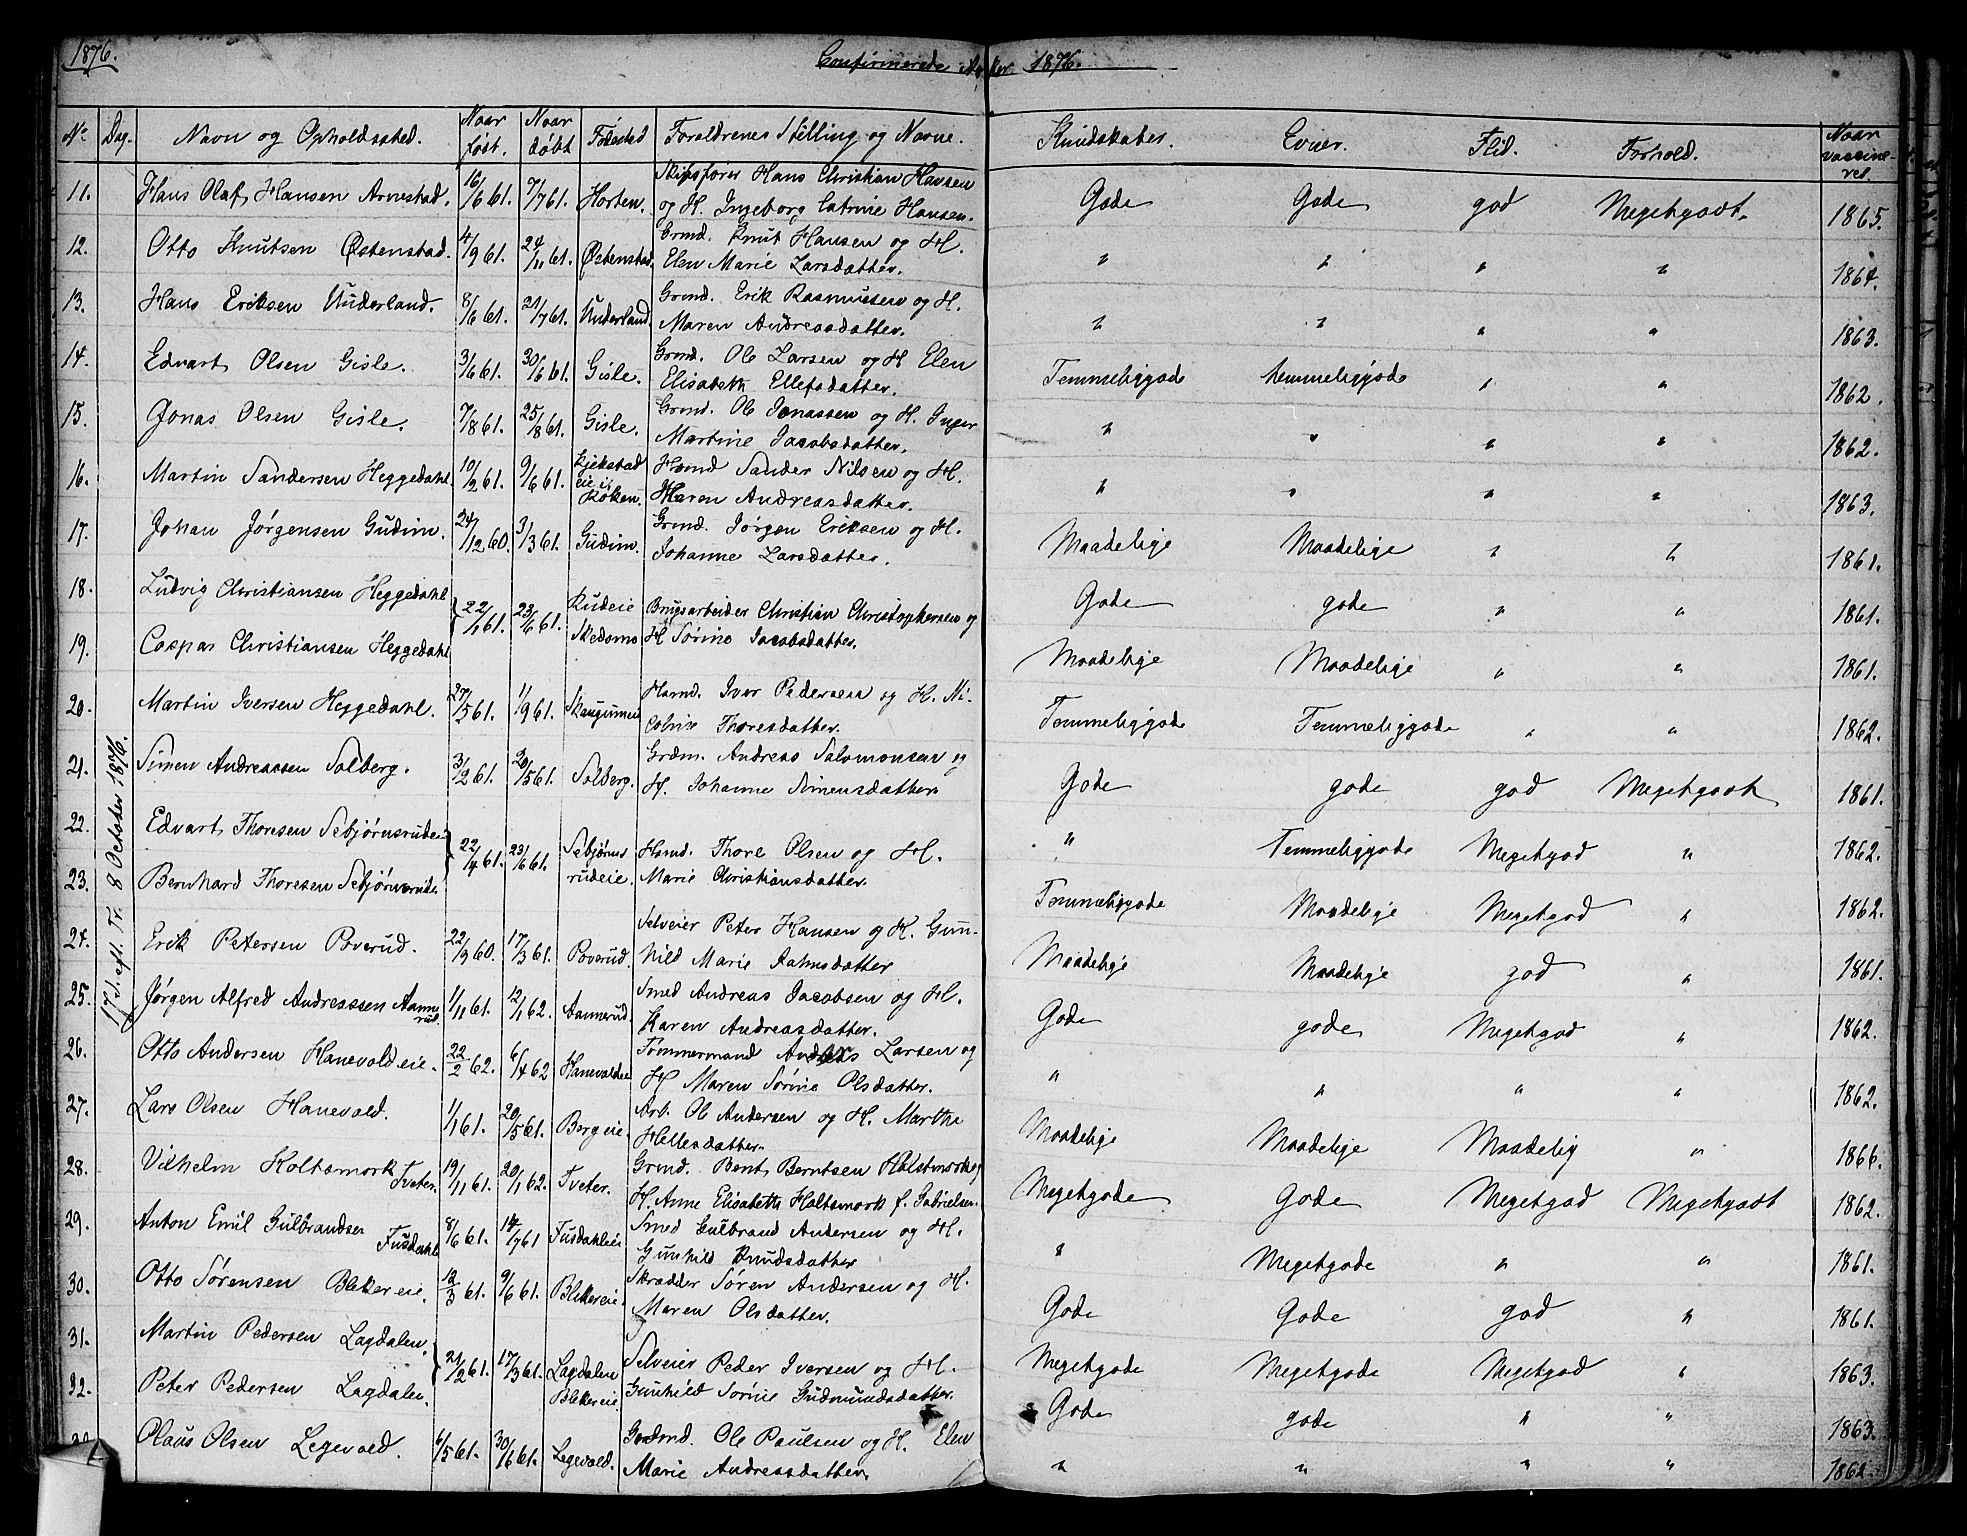 1876. Confirmerede Asker 1876.
No. Dag. Navn og Opholdssted. Naar født. Naar døbt Fødested Forældrenes Stilling og Navne. Kundskaber. Evner. Flid. Forhold. Naar vaccineret.
17 S. eft. Tr. 8 October 1876.
11. Hans Olaf Hansen Arnestad. 16/6 61. 7/7 61. Horten. Skibsfører Hans Christian Hansen og H. Ingeborg Catrine Hansen. Gode Gode god Megetgodt. 1865.
12. Otto Knutsen Østenstad. 4/9 61. 24/11 61. Østenstad. Grmd. Knut Hansen og H. Elen Marie Larsdatter. " " " " 1864.
13. Hans Eriksen Underland. 8/6 61. 21/7 61. Underland. Grmd. Erik Rasmussen og H. Maren Andreasdatter. " " " " 1863.
14. Edvart Olsen Gisle. 3/6 61. 30/6 61. Gisle. Grmd. Ole Larsen og H Elen Elisabeth Ellefsdatter. Temmeliggode temmeliggode " " 1862.
15. Jonas Olsen Gisle. 7/8 61. 25/8 61. Gisle. Grmd. Ole Jonassen og H. Inger Martine Jacobsdatter. " " " " 1862.
16. Martin Sandersen Heggedahl 10/2 61. 9/6 61. Kjekstad eie i Røken. Hsmd Sander Nilsen og H. Maren Andreasdatter. " " " " 1863.
17. Johan Jørgensen Gudim. 24/12 60. 3/3 61. Gudim. Grmd. Jørgen Eriksen og H. Johanne Larsdatter. Maadelige Maadelige " " 1861.
18. Ludvig Christiansen Heggedahl } 22/1 61. 23/6 61. Rudeie Skedsmo Brugsarbeider Christian Christophersen og H Sørine Jacobsdatter. Gode gode " " 1861.
19. Caspar Christiansen Heggedahl Maadelige Maadelige " " 1861.
20. Martin Iversen Heggedahl. 27/5 61. 1/9 61. Skaugumeie Hsmd. Iver Pedersen og H. Nicoline Thoresdatter. Temmeliggode Temmeliggode " " 1862.
21. Simen Andreassen Solberg. 3/2 61. 20/5 61. Solberg. Grdm. Andreas Salomonsen og H. Johanne Simensdatter Gode gode god Megetgodt 1861.
22. Edvart Thoresen Sebjørnsrudeie } 22/4 61. 23/6 61. Sebjørnsrudeie. Hsmd. Thore Olsen og H. Marie Christiansdatter. " Temmeliggode Megetgod " 1862.
23. Bernhard Thoresen Sebjørnsrudeie Temmeliggode Maadelige Megetgod " 1862.
24. Erik Petersen Poverud. 22/9 60. 17/3 61. Poverud. Selveier Peter Hansen og K. Gunhild Marie Rahmsdatter Maadelige Maadelige god " 1861.
25. Jørgen Alfred Andreassen Aannerud. 1/11 61. 12/1 62. Aannerud. Smed Andreas Jacobsen og H. Karen Andreasdatter. Gode gode Megetgod " 1862.
26. Otto Andersen Hanevoldeie. 22/2 62. 6/4 62 Hanevoldeie Tømmermand Anders Larsen og H Maren Sørine Olsdatter. " " " " 1862.
27. Lars Olsen Hanevold. 1/1 61. 20/5 61. Bergeie. Arb. Ole Andersen og H. Marthe Hellesdatter. Maadelige Maadelige Maadelig " 1866.
28. Vilhelm Holtsmork Tveter. 19/11 61. 20/1 62. Tveter. Grmd. Bent Berntsen Holstmork og H. Anne Elisabeth Holtsmork f. Gabrielsen. Megetgode Gode Megetgod Megetgodt 1862.
29. Anton Emil Gulbrandsen Fusdahl 8/6 61. 14/7 61 Fusdahleie Smed Gulbrand Andersen og H. Gunhild Knudsdatter " Megetgode " " 1861.
30. Otto Sørensen Blekereie. 12/3 61. 9/6 61. Blekereie. Skrædder Søren Andersen og H. Maren Olsdatter. Gode Gode god " 1861.
31. Martin Pedersen Lagdalen. } 21/2 61. 17/3 61. Lagdalen Blekereie Selveier Peder Iversen og H. Gunhild Sørine Gudmundsdatter. Megetgode Megetgode Megetgod " 1863.
32. Peter Pedersen Lagdalen. Gode gode " " 1863.
Claus Olsen Legevold. 6/5 61. 30/6 61. Legevold. Grdmd. Ole Paulsen og H. Elen Marie Andreasdatter. " " " " 1862.